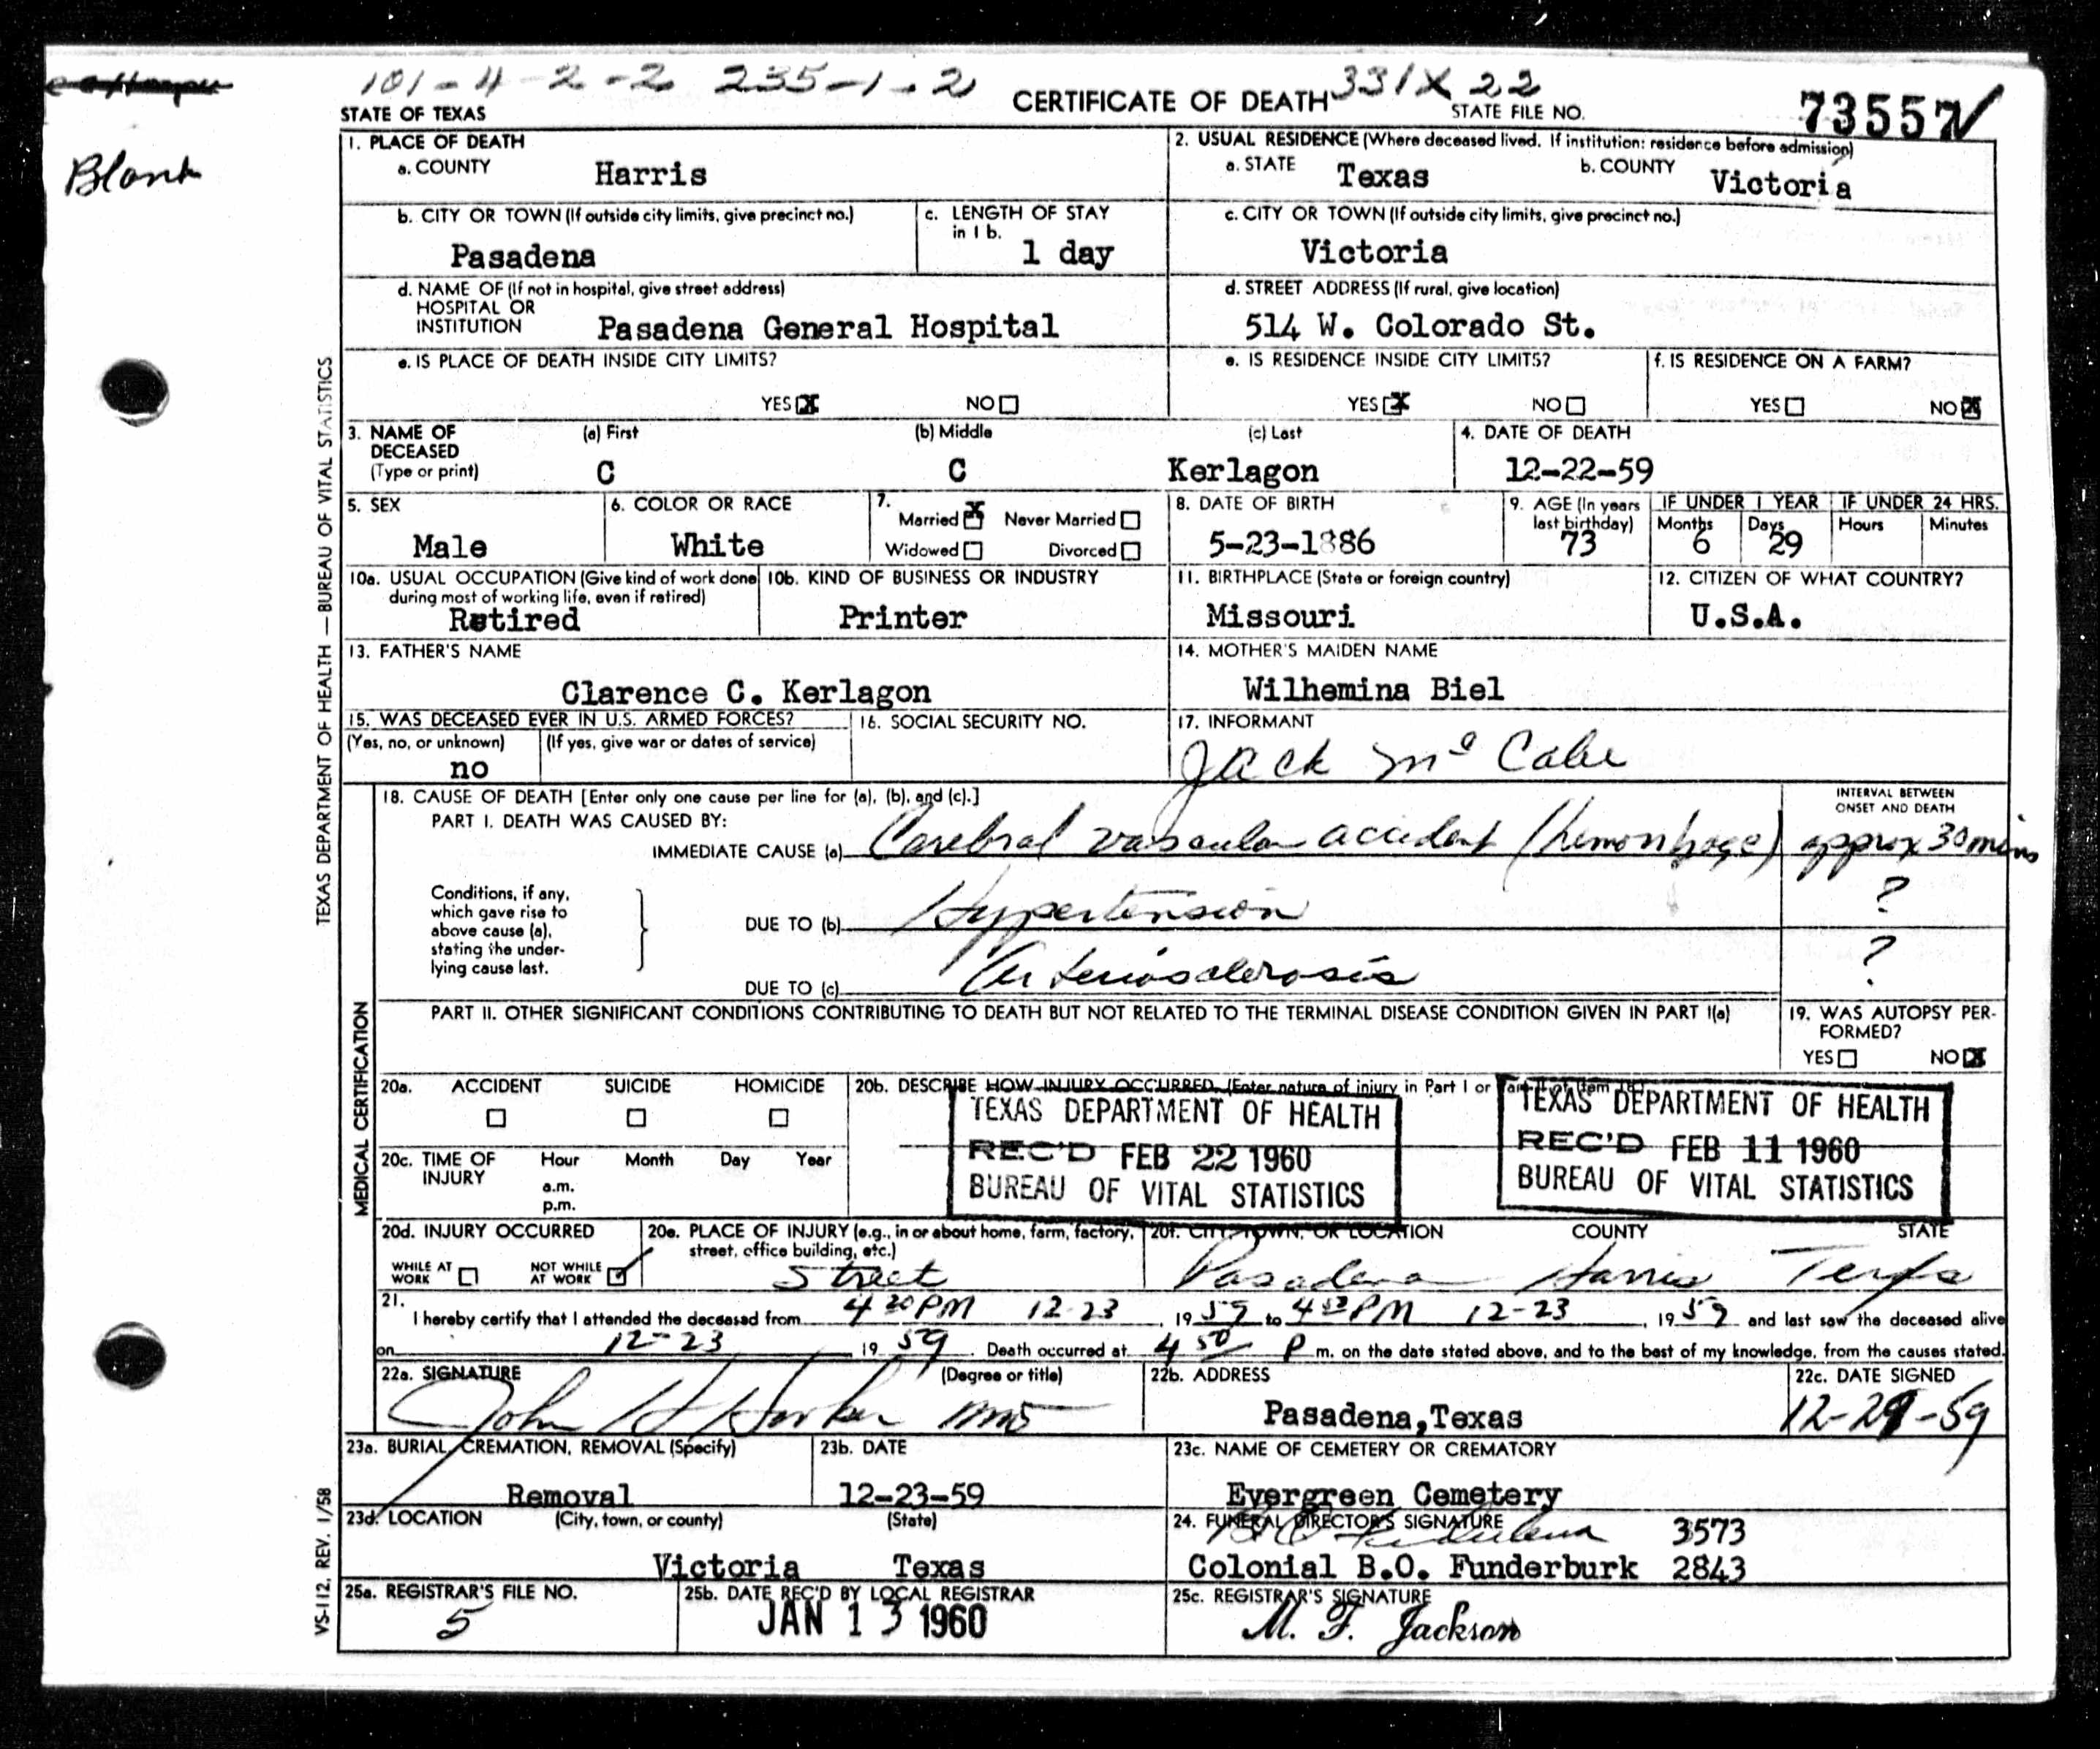 101-4-2-2 235-1-2 331X 22
STATE OF TEXAS CERTIFICATE OF DEATH STATE FILE NO. 73557
Blank
1. PLACE OF DEATH
a. COUNTY Harris
2. USUAL RESIDENCE (Where deceased lived. If institution: residence before admission)
a. STATE Texas b. COUNTY Victoria
b. CITY OR TOWN (If outside city limits, give precinct no.) Pasadena
c. LENGTH OF STAY in 1 b. 1 day
c. CITY OR TOWN (If outside city limits, give precinct no.) Victoria
d. NAME OF (If not in hospital, give street address)
HOSPITAL OR
INSTITUTION Pasadena General Hospital
d. STREET ADDRESS (If rural, give location)
514 W. Colorado St.
e. IS PLACE OF DEATH INSIDE CITY LIMITS?
YES X NO
e. IS RESIDENCE INSIDE CITY LIMITS?
YES X NO
f. IS RESIDENCE ON A FARM?
YES NO X
3. NAME OF DECEASED (Type or print)
(a) First C (b) Middle C (c) Last Kerlagon
4. DATE OF DEATH
12-22-59
5. SEX
Male
6. COLOR OR RACE
White
7. Married X Never Married
Widowed Divorced
8. DATE OF BIRTH
5-23-1886
9. AGE (In years last birthday) 73
IF UNDER 1 YEAR Months 6 Days 29
IF UNDER 24 HRS. Hours Minutes
10a. USUAL OCCUPATION (Give kind of work done during most of working life, even if retired)
Retired
10b. KIND OF BUSINESS OR INDUSTRY
Printer
11. BIRTHPLACE (State or foreign country)
Missouri
12. CITIZEN OF WHAT COUNTRY?
U.S.A.
13. FATHER'S NAME
Clarence C. Kerlagon
14. MOTHER'S MAIDEN NAME
Wilhemina Biel
15. WAS DECEASED EVER IN U.S. ARMED FORCES?
(Yes, no, or unknown) (If yes, give war or dates of service)
no
16. SOCIAL SECURITY NO.
17. INFORMANT
Jack McCabe
18. CAUSE OF DEATH [Enter only one cause per line for (a), (b), and (c).]
PART I. DEATH WAS CAUSED BY:
INTERVAL BETWEEN ONSET AND DEATH
IMMEDIATE CAUSE (a) Cerebral vascular accident (hemorrhage) approx 30 mins
Conditions, if any, which gave rise to above cause (a), stating the under-lying cause last.
DUE TO (b) Hypertension ?
DUE TO (c) Arteriosclerosis ?
PART II. OTHER SIGNIFICANT CONDITIONS CONTRIBUTING TO DEATH BUT NOT RELATED TO THE TERMINAL DISEASE CONDITION GIVEN IN PART I(a)
19. WAS AUTOPSY PER-FORMED?
YES NO X
20a. ACCIDENT SUICIDE HOMICIDE
20b. DESCRIBE HOW INJURY OCCURRED. (Enter nature of injury in Part I or Part II of Item 18.)
TEXAS DEPARTMENT OF HEALTH
REC'D FEB 22 1960
BUREAU OF VITAL STATISTICS
TEXAS DEPARTMENT OF HEALTH
REC'D FEB 11 1960
BUREAU OF VITAL STATISTICS
20c. TIME OF INJURY Hour Month Day Year
a.m.
p.m.
20d. INJURY OCCURRED
WHILE AT WORK NOT WHILE AT WORK
20e. PLACE OF INJURY (e.g., in or about home, farm, factory, street, office building, etc.)
Street
20f. CITY, TOWN, OR LOCATION COUNTY STATE
Pasadena Harris Texas
21. I hereby certify that I attended the deceased from 4 20 PM 12-23, 19 59 to PM 12-23, 19 59 and last saw the deceased alive
on 12-23 19 59. Death occurred at 4 50 P m. on the date stated above, and to the best of my knowledge, from the causes stated.
22a. SIGNATURE (Degree or title)
John H MD
22b. ADDRESS
Pasadena, Texas
22c. DATE SIGNED
12-29-59
23a. BURIAL, CREMATION, REMOVAL (Specify)
Removal
23b. DATE
12-23-59
23c. NAME OF CEMETERY OR CREMATORY
Evergreen Cemetery
23d. LOCATION (City, town, or county) (State)
Victoria Texas
24. FUNERAL DIRECTOR'S SIGNATURE 3573
Colonial B.O. Funderburk 2843
25a. REGISTRAR'S FILE NO.
5
25b. DATE REC'D BY LOCAL REGISTRAR
JAN 13 1960
25c. REGISTRAR'S SIGNATURE
M. F. Jackson
TEXAS DEPARTMENT OF HEALTH — BUREAU OF VITAL STATISTICS
MEDICAL CERTIFICATION
VS-112, REV. 1/58